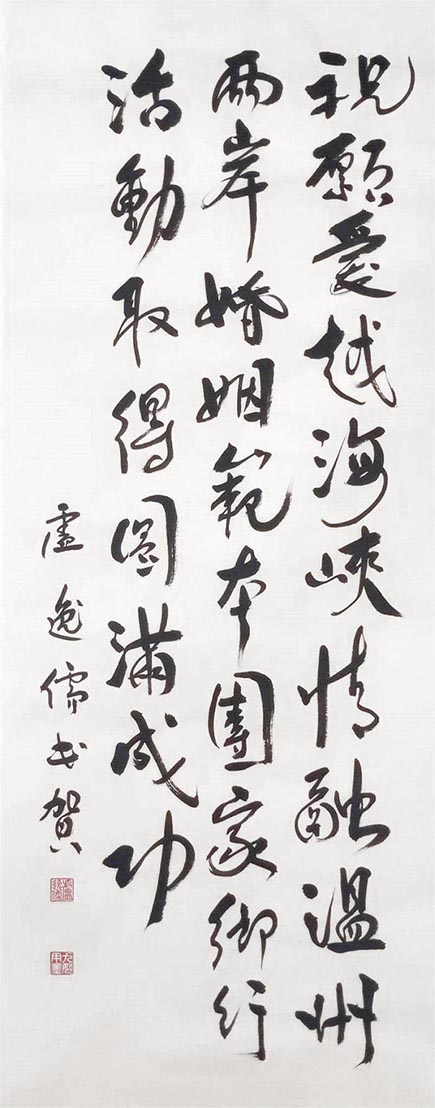 祝願愛越海峽情融溫州
兩岸婚姻範本團家鄉行
活動取得圓滿成功
盧逸儒書賀